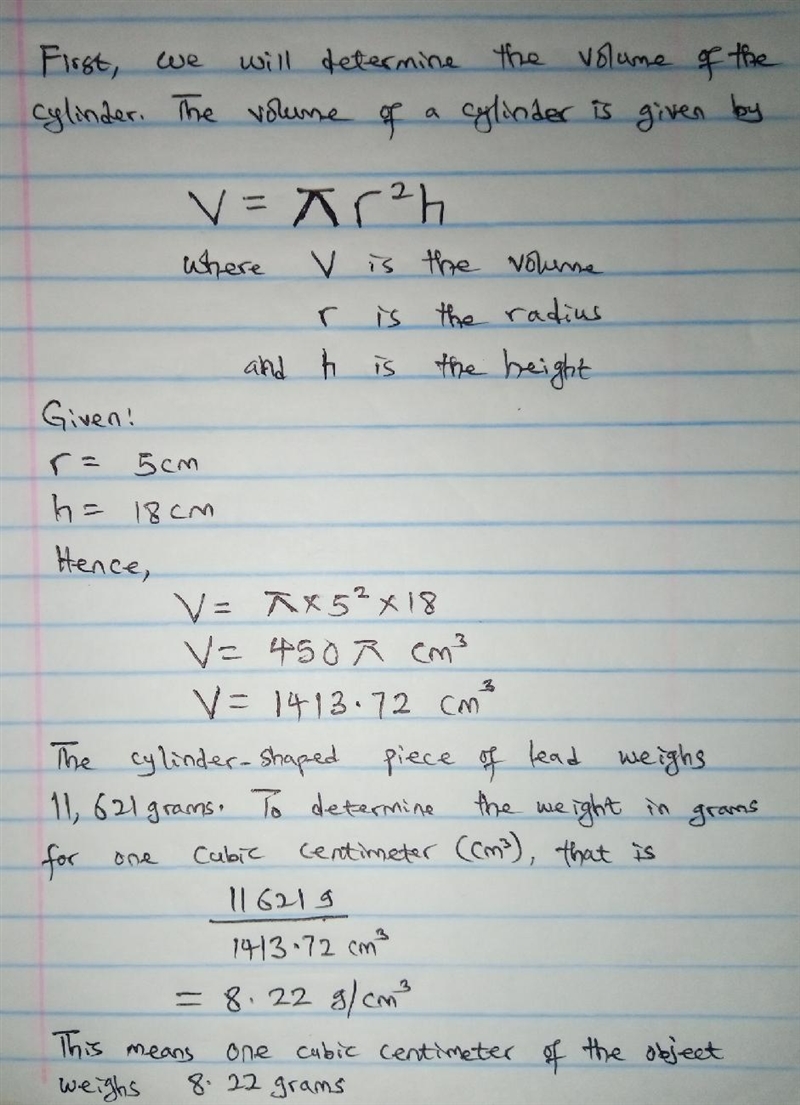 First, we will determine the volume of the
cylinder. The volume of a cylinder is given by
V = πr²h
where V is the volume
r is the radius
and h is the height
Given:
r = 5cm
h = 18cm
Hence,
V = π×5²×18
V = 450π cm³
V = 1413.72 cm³
The cylinder-shaped piece of lead weighs
11,621 grams. To determine the weight in grams
for one cubic centimeter (cm³), that is
11621 g
1413.72 cm³
= 8.22 g/cm³
This means one cubic centimeter of the object
weighs 8.22 grams